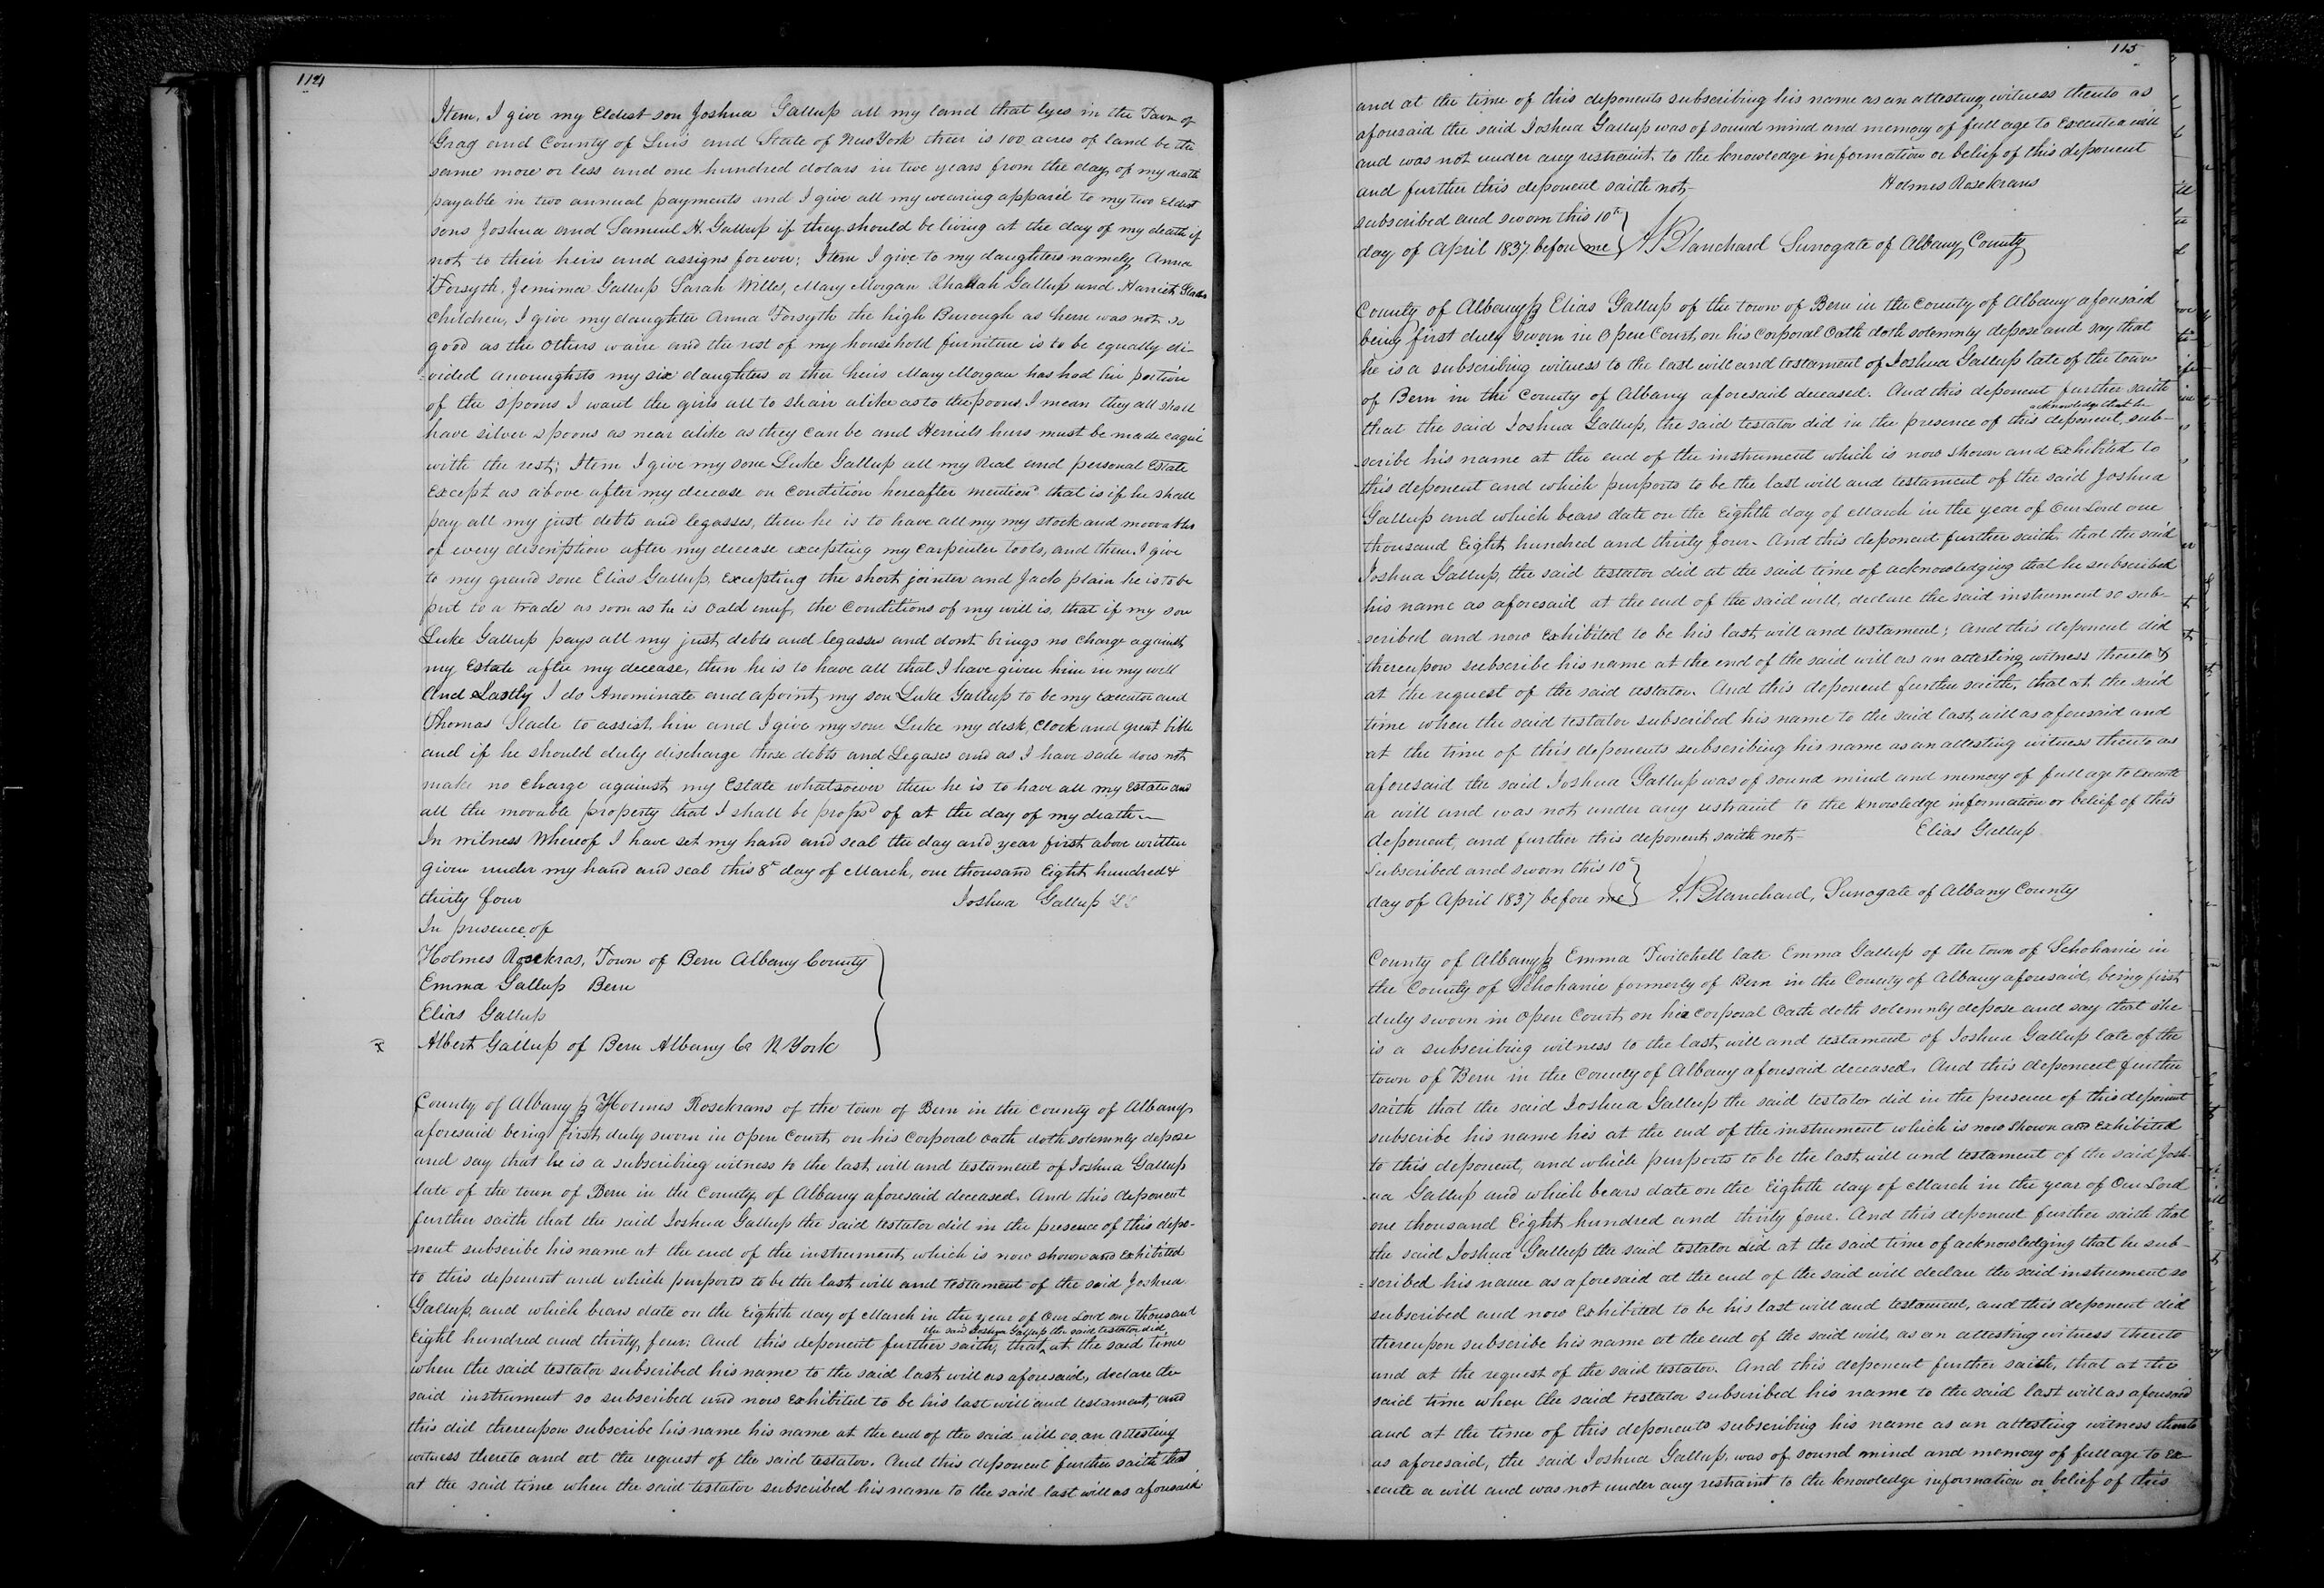 114
Item, I give my Eldest son Joshua Gallup all my land that lyes in the Town of
Grag and County of Luis and State of New York ther is 100 acres of land be the
same more or less and one hundred dolars in two years from the day of my death
payable in two annual payments and I give all my wearing apparil to my two Eldest
sons Joshua and Samuel H. Gallup if they should be living at the day of my death if
not to their heirs and assigns forever; Item I give to my daughters namely Anna
Forsyth, Jemima Gallup Sarah Willes, Mary Morgan Gallup and Harriet Slades
Children, I give my daughter Anna Forsyth the high Burough as hern was not so
good as the Others waire and the rest of my household furniture is to be equally di-
-vided amounghsts my six daughters or ther heirs Mary Morgan has had her portion
of the spoons I want the girls all to shair alike as to the spoons I mean they all shall
have silver spoons as near alike as they can be and Herriets hurs must be made eaquil
with the rest; Item I give my sone Luke Gallup all my Real and personal Estate
Except as above after my decease on condition hereafter mentiond that is if he shall
pay all my just debts and legasses, then he is to have all my my stock and moovables
of every discription after my decease excepting my carpenter tools, and them I give
to my grand sone Elias Gallup, Excepting the short jointer and Jack plain he is to be
put to a trade as soon as he is oald enuf, the conditions of my will is, that if my son
Luke Gallup pays all my just debts and legasses and dont brings no charge against
my Estate after my decease, then he is to have all that I have given him in my will
And Lastly I do Anominate and apoint my son Luke Gallup to be my Executor and
Thomas Slade to assist him and I give my sone Luke my desk, clock and great bible
and if he should duly discharge these debts and Legases and as I have sade does not
make no charge against my Estate whatsoever then he is to have all my Estate and
all the movable property that I shall be propsd of at the day of my death—
In witness Whereof I have set my hand and seal the day and year first above written
given under my hand and seal this 8th day of March, one thousand Eight hundred &
thirty four Joshua Gallup LS
In presence of
Holmes Rosekras, Town of Bern Albany County
Emma Gallup Bern
Elias Gallup
Albert Gallup of Bern Albany Co N. York
County of Albany ss Holmes Rosekrans of the town of Bern in the County of Albany
aforesaid being first duly sworn in Open Court on his Corporal Oath doth solemnly depose
and say that he is a subscribing witness to the last will and testament of Joshua Gallup
late of the town of Bern in the County of Albany aforesaid deceased. And this deponent
further saith that the said Joshua Gallup the said testator did in the presence of this depo-
-nent subscribe his name at the end of the instrument which is now shown and Exhibited
to this deponent and which purports to be the last will and testament of the said Joshua
Gallup, and which bears date on the Eighth day of March in the year of Our Lord one thousand
the said Joshua Gallup the said testator did
Eight hundred and thirty four: And this deponent further saith, that ^ at the said time
when the said testator subscribed his name to the said last will as aforesaid, declare the
said instrument so subscribed and now exhibited to be his last will and testament, and
this did thereupon subscribe his name his name at the end of the said will as an attesting
witness thereto and at the request of the said testator. And this deponent further saith that
at the said time when the said testator subscribed his name to the said last will as aforesaid
115
and at the time of this deponents subscribing his name as an attesting witness thereto as
aforesaid the said Joshua Gallup was of sound mind and memory of full age to Execute a will
and was not under any restraint to the knowledge information or belief of this deponent
and further this deponent saith not— Holmes Rosekrans
subscribed and sworn this 10th
day of April 1837 before me A. Blanchard Surrogate of Albany County
County of Albany ss Elias Gallup of the town of Bern in the County of Albany aforesaid
being first duly sworn in Open Court on his Corporal Oath doth solemnly depose and say that
he is a subscribing witness to the last will and testament of Joshua Gallup late of the town
of Bern in the County of Albany aforesaid deceased. And this deponent further saith
acknowledge that he
that the said Joshua Gallup, the said testator did in the presence of this deponent, sub-
-scribe his name at the end of the instrument which is now shown and Exhibited to
this deponent and which purports to be the last will and testament of the said Joshua
Gallup and which bears date on the Eighth day of March in the year of Our Lord one
thousand Eight hundred and thirty four. And this deponent further saith that the said
Joshua Gallup, the said testator did at the said time of acknowledging that he subscribed
his name as aforesaid at the end of the said will, declare the said instrument so sub-
-scribed and now exhibited to be his last will and testament; and this deponent did
thereupon subscribe his name at the end of the said will as an attesting witness thereto &
at the request of the said testator. And this deponent further saith, that at the said
time when the said testator subscribed his name to the said last will as aforesaid and
at the time of this deponents subscribing his name as an attesting witness thereto as
aforesaid the said Joshua Gallup was of sound mind and memory of full age to Execute
a will and was not under any restraint to the knowledge information or belief of this
deponent, and further this deponent saith not— Elias Gallup
Subscribed and sworn this 10th
day of April 1837 before me A. Blanchard, Surrogate of Albany County
County of Albany ss Emma Twitchell late Emma Gallup of the town of Schoharie in
the County of Schoharie formerly of Bern in the County of Albany aforesaid, being first
duly sworn in Open Court on her corporal Oath doth solemnly depose and say that she
is a subscribing witness to the last will and testament of Joshua Gallup late of the
town of Bern in the County of Albany aforesaid deceased. And this deponent further
saith that the said Joshua Gallup the said testator did in the presence of this deponent
subscribe his name his at the end of the instrument which is now shown and Exhibited
to this deponent, and which purports to be the last will and testament of the said Josh-
-ua Gallup and which bears date on the Eighth day of March in the year of Our Lord
one thousand Eight hundred and thirty four. And this deponent further saith that
the said Joshua Gallup the said testator did at the said time of acknowledging that he sub-
-scribed his name as aforesaid at the end of the said will declare the said instrument so
subscribed and now Exhibited to be his last will and testament, and this deponent did
thereupon subscribe his name at the end of the said will, as an attesting witness thereto
and at the request of the said testator. And this deponent further saith, that at the
said time when the said testator subscribed his name to the said last will as aforesaid
and at the time of this deponents subscribing his name as an attesting witness thereto
as aforesaid, the said Joshua Gallup, was of sound mind and memory of full age to Ex-
-ecute a will and was not under any restraint to the knowledge information or belief of this